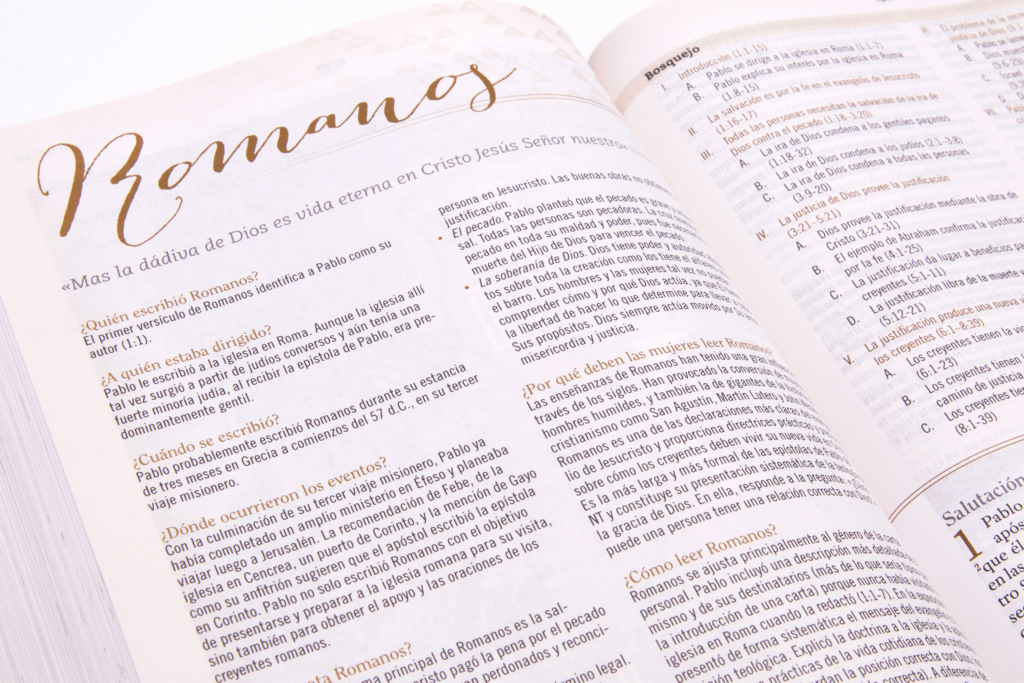 Romanos
«Mas la dádiva de Dios es vida eterna en Cristo Jesús Señor nuestro»
¿Quién escribió Romanos?
El primer versículo de Romanos identifica a Pablo como su
autor (1:1).
¿A quién estaba dirigido?
Pablo le escribió a la iglesia en Roma. Aunque la iglesia allí
tal vez surgió a partir de judíos conversos y aún tenía una
fuerte minoría judía, al recibir la epístola de Pablo, era pre-
dominantemente gentil.
¿Cuándo se escribió?
Pablo probablemente escribió Romanos durante su estancia
de tres meses en Grecia a comienzos del 57 d.C., en su tercer
viaje misionero.
¿Dónde ocurrieron los eventos?
Con la culminación de su tercer viaje misionero, Pablo ya
había completado un amplio ministerio en Éfeso y planeaba
viajar luego a Jerusalén. La recomendación de Febe, de la
iglesia en Cencrea, un puerto de Corinto, y la mención de Gayo
como su anfitrión sugieren que el apóstol escribió la epístola
en Corinto. Pablo no solo escribió Romanos con el objetivo
de presentarse y preparar a la iglesia romana para su visita,
sino también para obtener el apoyo y las oraciones de los
creyentes romanos.
Romanos?
principal de Romanos es la sal-
cristo pagó la pena por el pecado
perdonados y reconci-
legal.
persona en Jesucristo. Las buenas obras no
justificación.
• El pecado. Pablo planteó que el pecado es grave
sal. Todas las personas son pecadoras. La cruz
pecado en toda su maldad y poder, pues fue
muerte del Hijo de Dios para vencer el pecado.
• La soberanía de Dios. Dios tiene poder y
tos sobre toda la creación como los tiene el
el barro. Los hombres y las mujeres tal vez no
comprender cómo y por qué Dios actúa, ya
la libertad de hacer lo que determine para llevar
Sus propósitos. Dios siempre actúa movido por
misericordia y justicia.
¿Por qué deben las mujeres leer Romanos?
Las enseñanzas de Romanos han tenido una gran
través de los siglos. Han provocado la conversión de
hombres humildes, y también la de gigantes de
cristianismo como San Agustín, Martín Lutero y
Romanos es una de las declaraciones más claras del
lio de Jesucristo y proporciona directrices prácticas
sobre cómo los creyentes deben vivir su nueva vida
Es la más larga y más formal de las epístolas de
NT y constituye su presentación sistemática de la
la gracia de Dios. En ella, responde a la pregunta:
puede una persona tener una relación correcta con
¿Cómo leer Romanos?
Romanos se ajusta principalmente al género de la carta
personal. Pablo incluyó una descripción más detallada
mismo y de sus destinatarios (más de lo que sería
la introducción de una carta) porque nunca había
iglesia en Roma cuando la redactó (1:1-7). En la
presentó de forma sistemática el mensaje del
posición teológica. Explicó la doctrina a la iglesia y
prácticas de la vida cotidiana de los
la posición correcta con Dios
correcta). A diferencia de
Bosquejo
I. Introducción (1:1-15)
A. Pablo se dirige a la iglesia en Roma (1:1-7)
B. Pablo explica su interés por la iglesia en Roma
(1:8-15)
II. La salvación es por la fe en el evangelio de Jesucristo
(1:16-17)
III. Todas las personas necesitan la salvación de la ira de
Dios contra el pecado (1:18–3:20)
A. La ira de Dios condena a los gentiles paganos
(1:18-32)
B. La ira de Dios condena a los judíos (2:1–3:8)
C. La ira de Dios condena a todas las personas
(3:9-20)
IV. La justicia de Dios provee la justificación
(3:21–5:21)
A. Dios provee la justificación mediante la obra de
Cristo (3:21-31)
B. El ejemplo de Abraham confirma la
por la fe (4:1-25)
C. La justificación da lugar a beneficios
creyentes (5:1-11)
D. La justificación libra de la muerte
(5:12-21)
V. La justificación produce una nueva
los creyentes (6:1–8:39)
A. Los creyentes tienen la
(6:1-23)
B. Los creyentes tienen
camino de justicia
C. Los creyentes
(8:1-39)
Salutación
1 Pablo
²que él
en las
tro